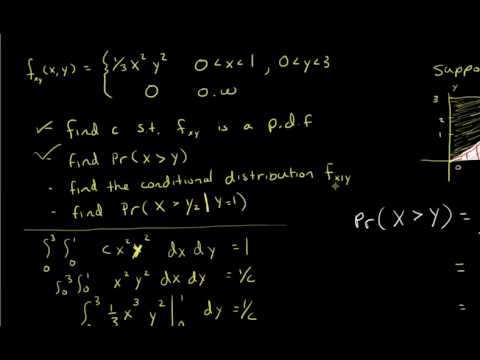 f_xy (x,y) = { 1/3 x² y²   0<x<1 , 0<y<3
0   o.w
✓ find c s.t. f_xy is a p.d.f
✓ find Pr(X>y)
- find the conditional distribution f_x|y
- find Pr(X > y₂ | Y=1)
∫₀³ ∫₀¹ c x² y² dx dy = 1
∫₀³ ∫₀¹ x² y² dx dy = 1/c
∫₀³ 1/3 x³ y² |₀¹ dy = 1/c
Suppo
y
3
2
1
0
Pr(X>Y) =
=
=